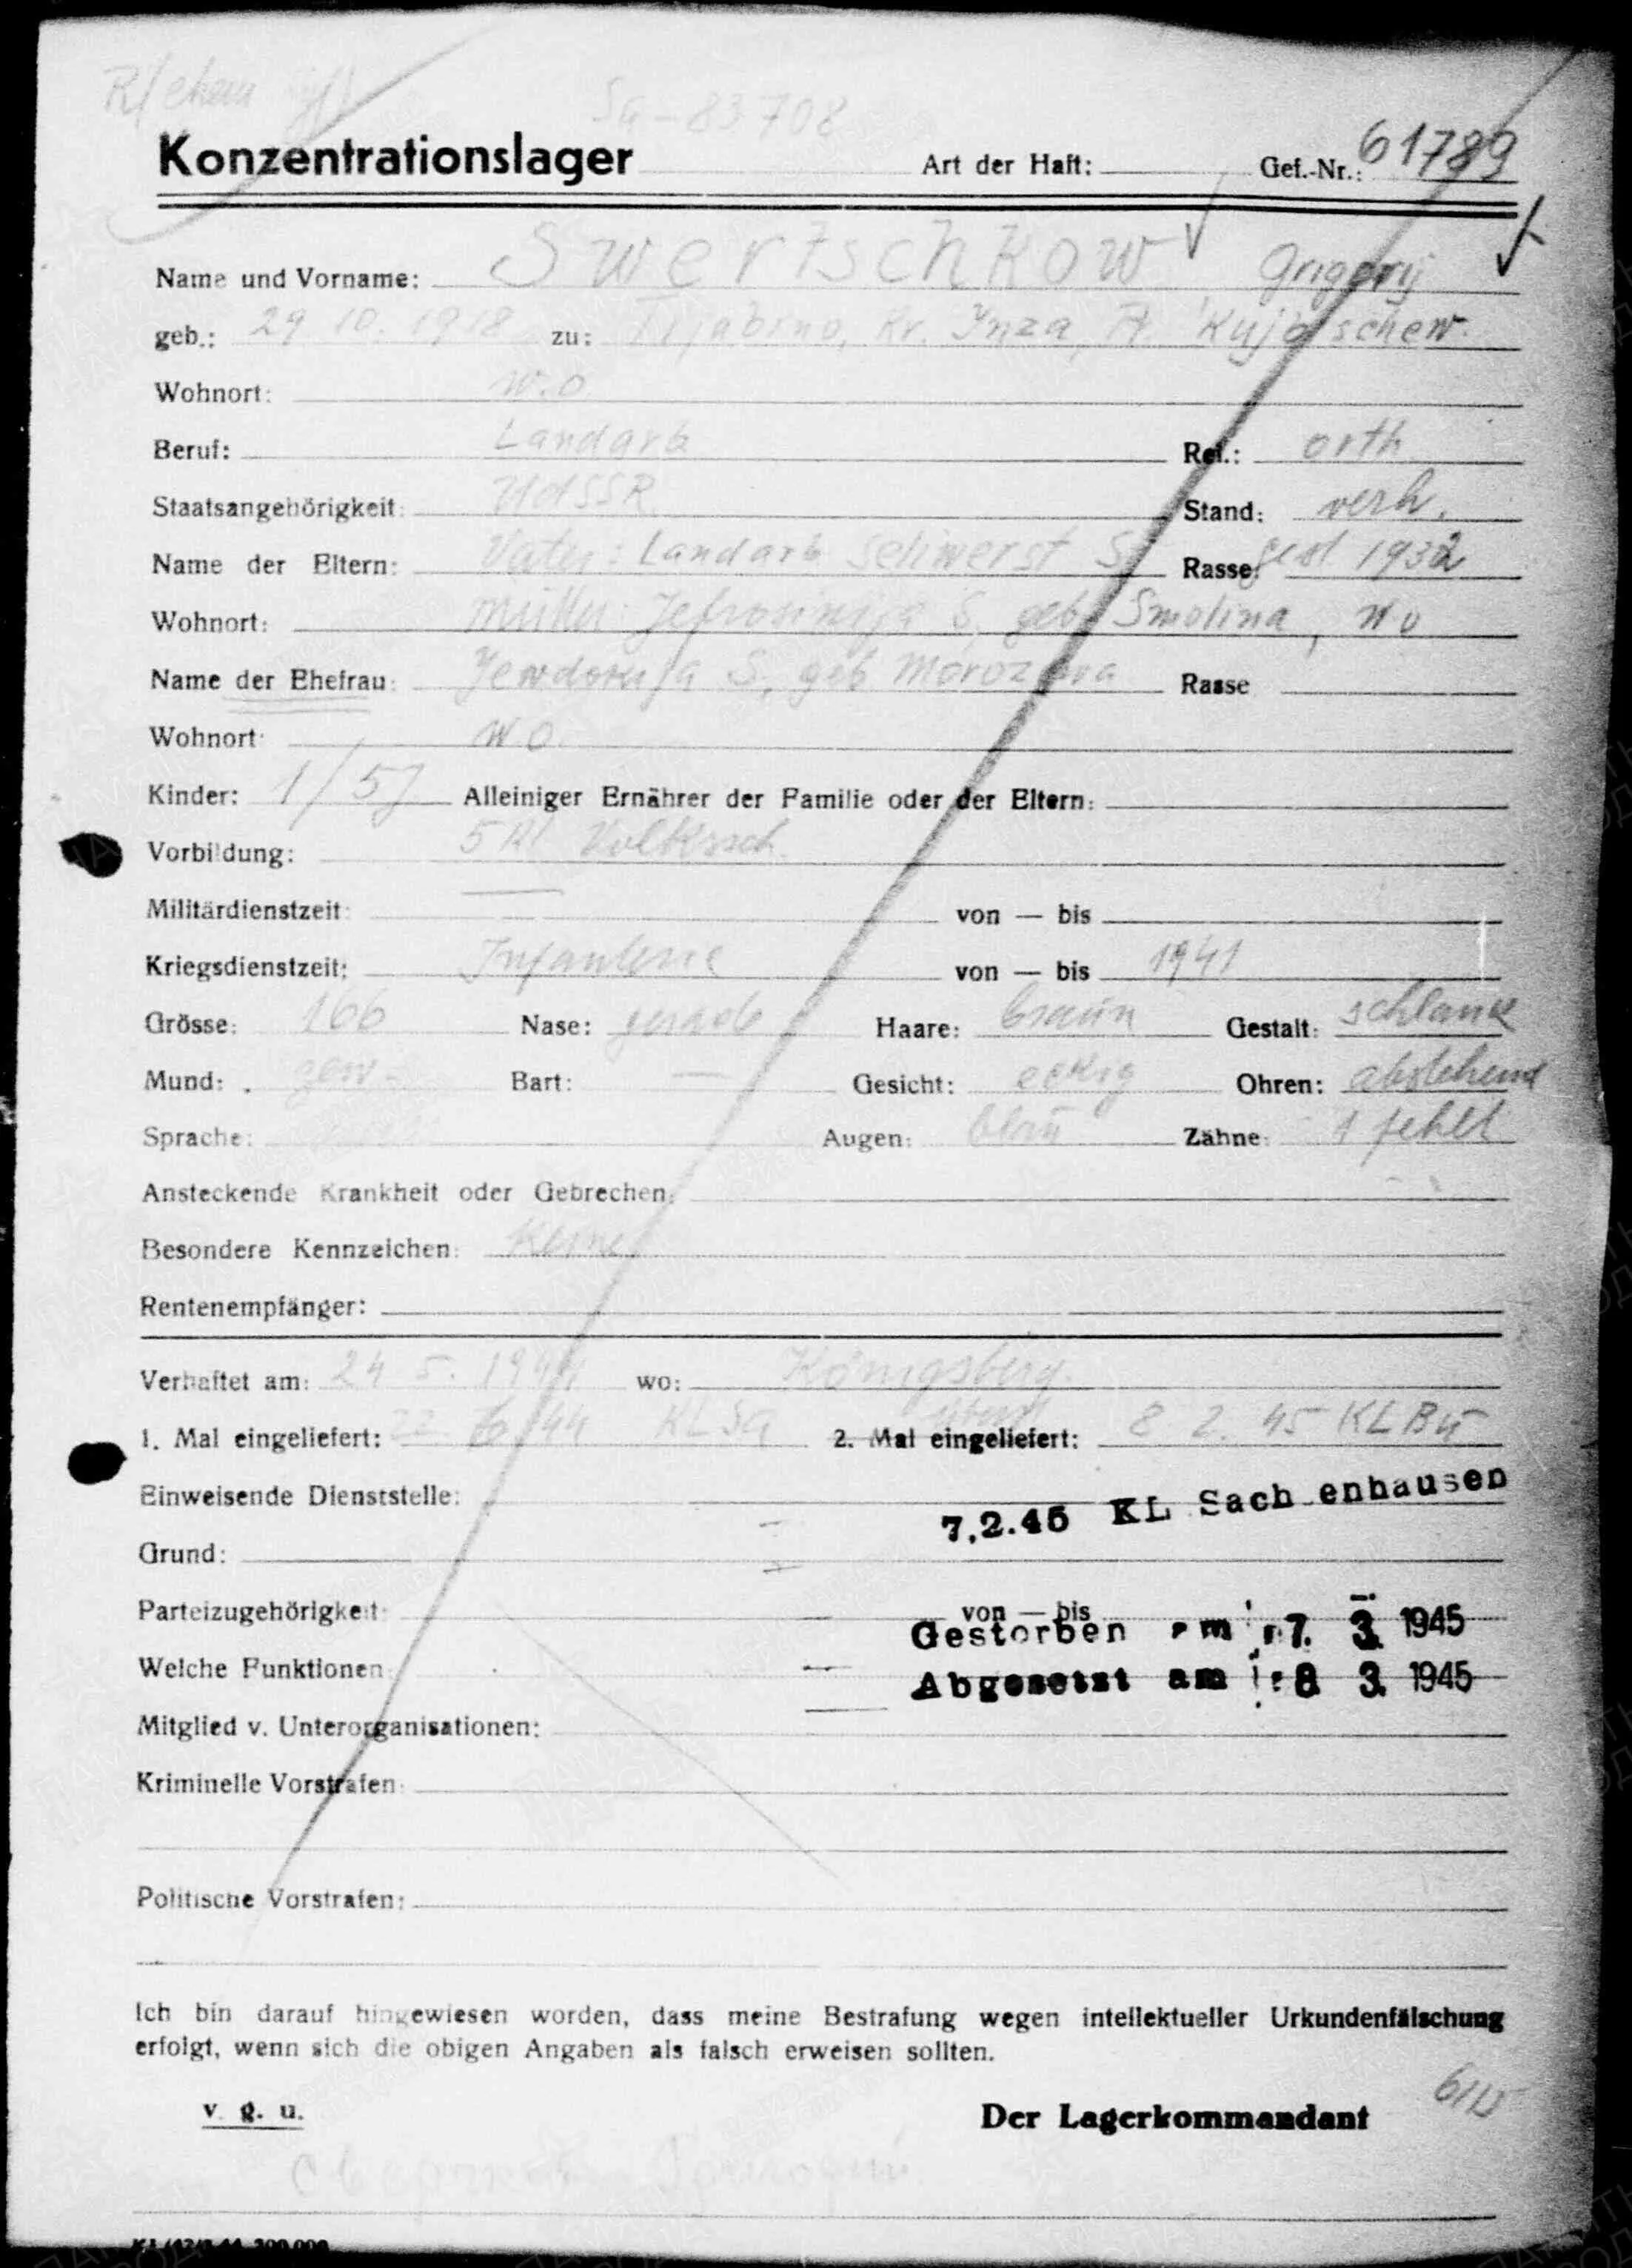 Sa-83708
Konzentrationslager Art der Haft: Gef.-Nr.: 61789
Name und Vorname: Swertschkow Grigorij
geb.: 29. 10. 1918 zu: Kr. Inza,
Wohnort: w.o
Beruf: Landarb Rel.: orth
Staatsangehörigkeit: UdSSR Stand: verh.
Name der Eltern: Vater: Landarb S. Rasse: gest 1932
Wohnort: Mutter: S. geb. Smolina, w o
Name der Ehefrau: Jewdokija S, geb Morozowa Rasse
Wohnort w o.
Kinder: 1/5J Alleiniger Ernährer der Familie oder der Eltern:
Vorbildung: 5 Kl Volkssch.
Militärdienstzeit: — von — bis
Kriegsdienstzeit: Infanterie von — bis 1941
Grösse: 166 Nase: gerade Haare: braun Gestalt: schlank
Mund: gew- Bart: — Gesicht: eckig Ohren: abstehend
Sprache: Augen: blau Zähne: 1 fehlt
Ansteckende Krankheit oder Gebrechen:
Besondere Kennzeichen: keine
Rentenempfänger:
Verhaftet am: 24 5. 1944 wo: Königsberg.
1. Mal eingeliefert: 6/44 KL Sa 2. Mal eingeliefert: 8 2. 45 KL Bu
Einweisende Dienststelle:
7.2.45 KL Sachsenhausen
Grund:
Parteizugehörigkeit: von — bis
Gestorben am 7. 3. 1945
Welche Funktionen:
Abgesetzt am 8 3. 1945
Mitglied v. Unterorganisationen:
Kriminelle Vorstrafen:
Politische Vorstrafen:
Ich bin darauf hingewiesen worden, dass meine Bestrafung wegen intellektueller Urkundenfälschung
erfolgt, wenn sich die obigen Angaben als falsch erweisen sollten.
v. g. u. Der Lagerkommandant